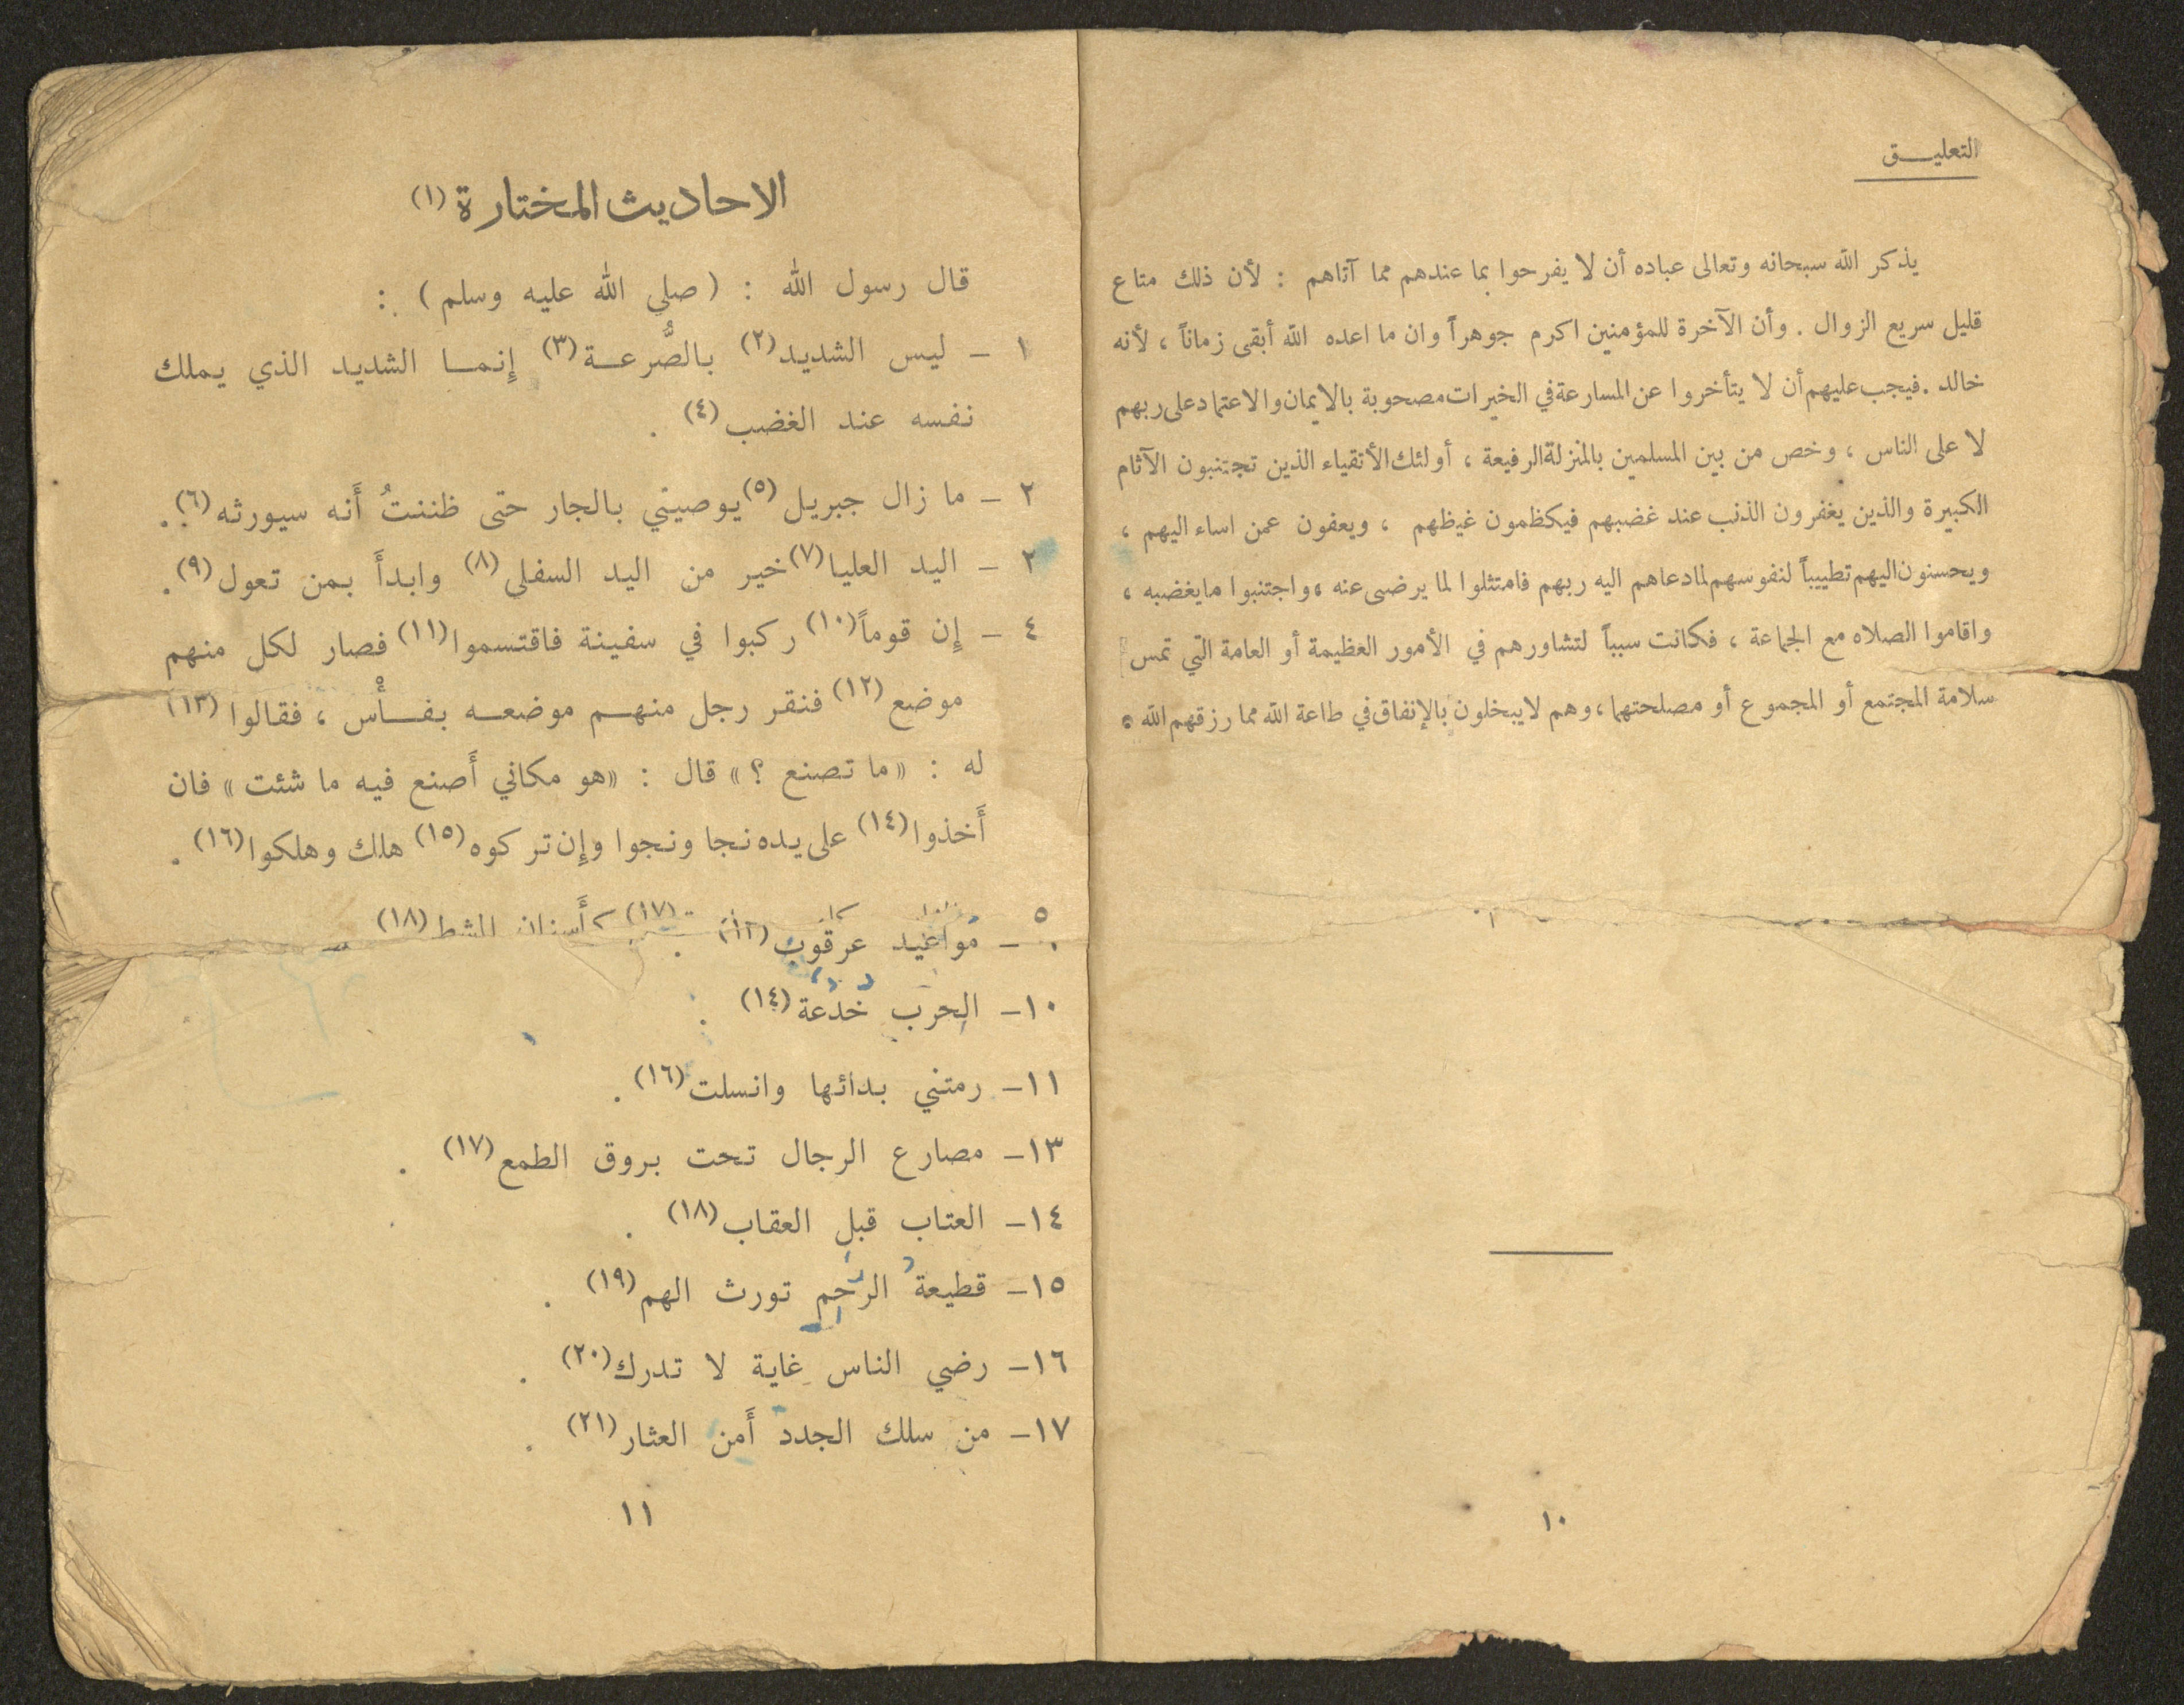 التعليــــق
يذكر الله سبحانه وتعالى عباده أن لا يفرحوا بما عندهم مما آتاهم : لأن ذلك متاع
قليل سريع الزوال . وأن الآخرة للمؤمنين اكرم جوهراً وان ما اعده الله أبقى زماناً ، لأنه
خالد . فيجب عليهم أن لا يتأخروا عن المسارعة في الخيرات مصحوبة بالايمان والاعتماد على ربهم
لا على الناس ، وخص من بين المسلمين بالمنزلة الرفيعة ، أولئك الأتقياء الذين تجتنبون الآثام
الكبيرة والذين يغفرون الذنب عند غضبهم فيكظمون غيظهم ، ويعفون عمن اساء اليهم ،
ويحسنون اليهم تطييباً لنفوسهم لما دعاهم اليه ربهم فامتثلوا لما يرضى عنه ، واجتنبوا ما يغضبه ،
واقاموا الصلاه مع الجماعة ، فكانت سبباً لتشاورهم في الأمور العظيمة أو العامة التي تمس
سلامة المجتمع أو المجموع أو مصلحتهما ، وهم لا يبخلون بالإنفاق في طاعة الله مما رزقهم الله .
١٠
الاحاديث المختارة (١)
قال رسول الله : ( صلى الله عليه وسلم ) :
١ – ليس الشديد (٢) بالصُّرعــة (٣) إنمــا الشديد الذي يملك
نفسه عند الغضب (٤) .
٢ – ما زال جبريل (٥) يوصيني بالجار حتى ظننتُ أَنه سيورثه (٦) .
٣ – اليد العليا (٧) خير من اليد السفلى (٨) وابدأَ بمن تعول (٩) .
٤ – إن قوماً (١٠) ركبوا في سفينة فاقتسموا (١١) فصار لكل منهم
موضع (١٢) فنقر رجل منهــم موضعــه بفــأْس ، فقالوا (١٣)
له : «ما تصنع ؟» قال : «هو مكاني أَصنع فيه ما شئت» فان
أَخذوا (١٤) على يده نجا ونجوا وإن تركوه (١٥) هلك وهلكوا (١٦) .
٥ (١٧) كأَسنان المشط (١٨)
– مواعيد عرقوب .
١٠– الحرب خدعة (١٤) .
١١– رمتني بدائها وانسلت (١٦) .
١٣– مصارع الرجال تحت بروق الطمع (١٧) .
١٤– العتاب قبل العقاب (١٨) .
١٥– قطيعة الرحم تورث الهم (١٩) .
١٦– رضي الناس غاية لا تدرك (٢٠) .
١٧– من سلك الجدد أَمن العثار (٢١) .
١١